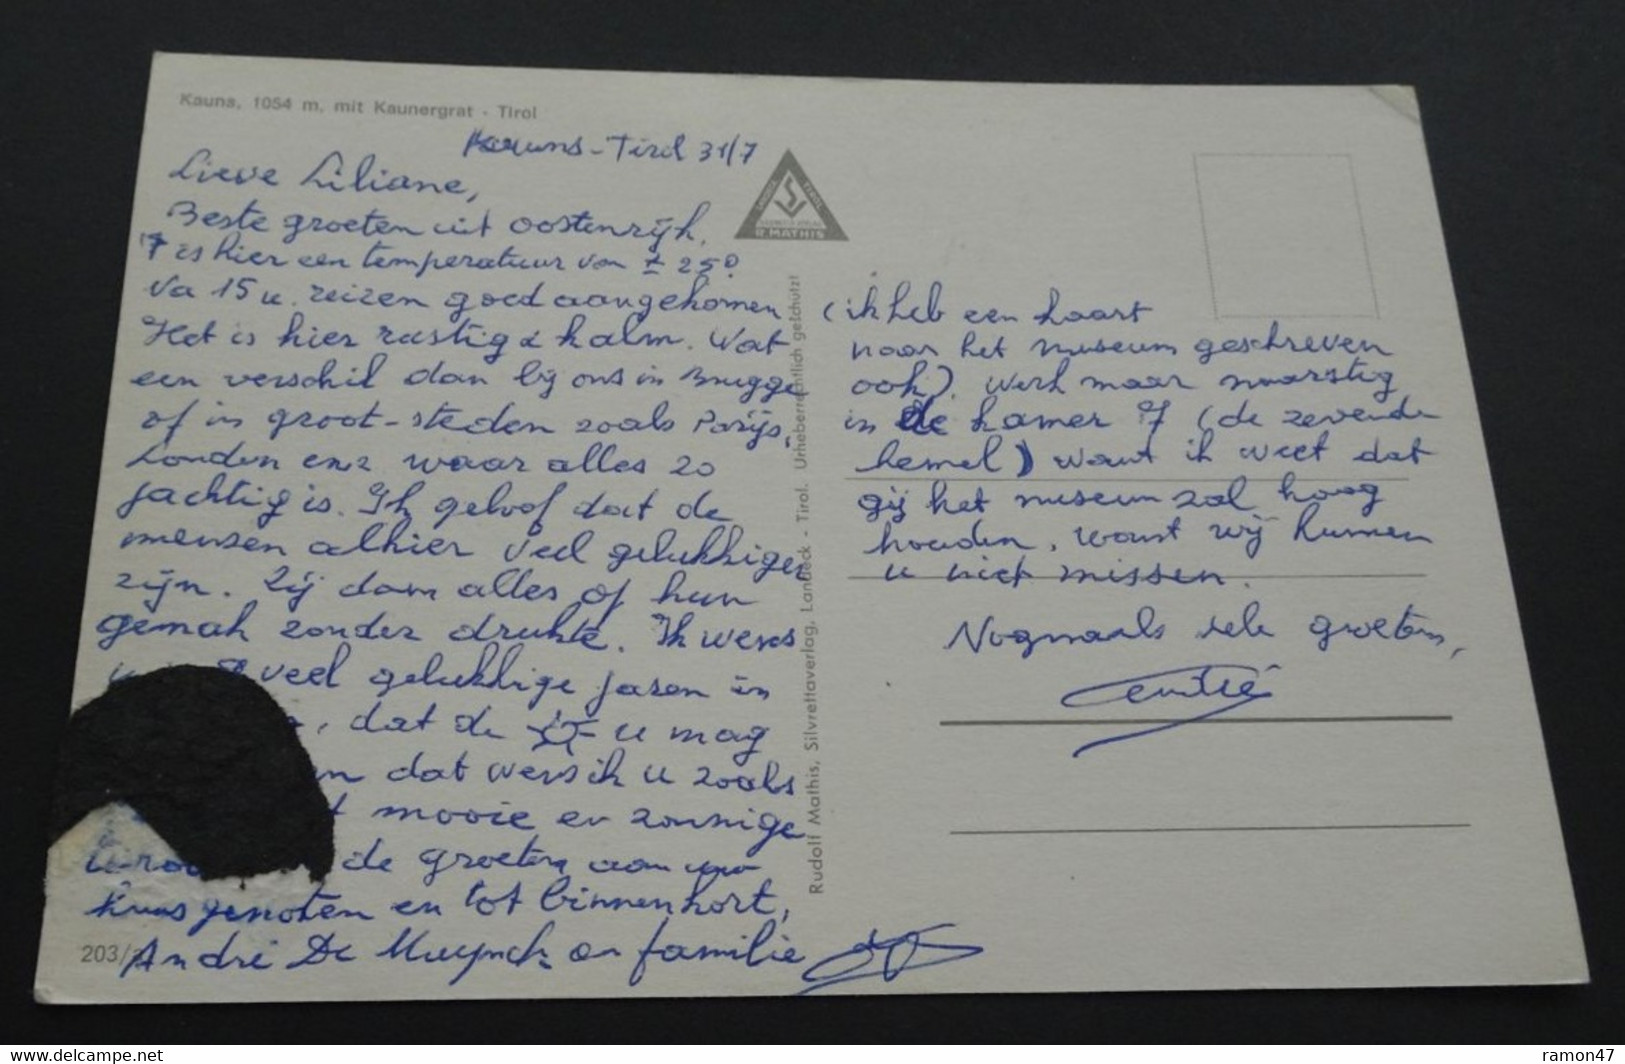 Kauns, 1054 m, mit Kaunergrat - Tirol
Kauns - Tirol 31/7
Lieve Liliane,
Beste groeten uit Oostenrijk.
't is hier een temperatuur van ± 25°.
Na 15 u. reizen goed aangekomen
Het is hier rustig & kalm. Wat
een verschil dan bij ons in Brugge
of in groot-steden zoals Parijs,
Londen enz waar alles zo
jachtig is. Ik geloof dat de
mensen alhier veel gelukkiger
zijn. Zij doen alles op hun
gemak zonder drukte. Ik wens
veel gelukkige jaren in
, dat de u mag
dat wens ik u zoals
mooie en zonnige
de groeten aan uw
genoten en tot binnenkort,
André De Muynck en familie
203/
R. MATHIS
Rudolf Mathis, Silvrettaverlag, Landeck - Tirol. Urheberrechtlich geschützt
(ik heb een kaart
naar het museum geschreven
ook). Werk maar naarstig
in de kamer 7 (de zevende
hemel) want ik weet dat
gij het museum zal hoog
houden, want wij kunnen
u niet missen.
Nogmaals vele groeten,
ramon47